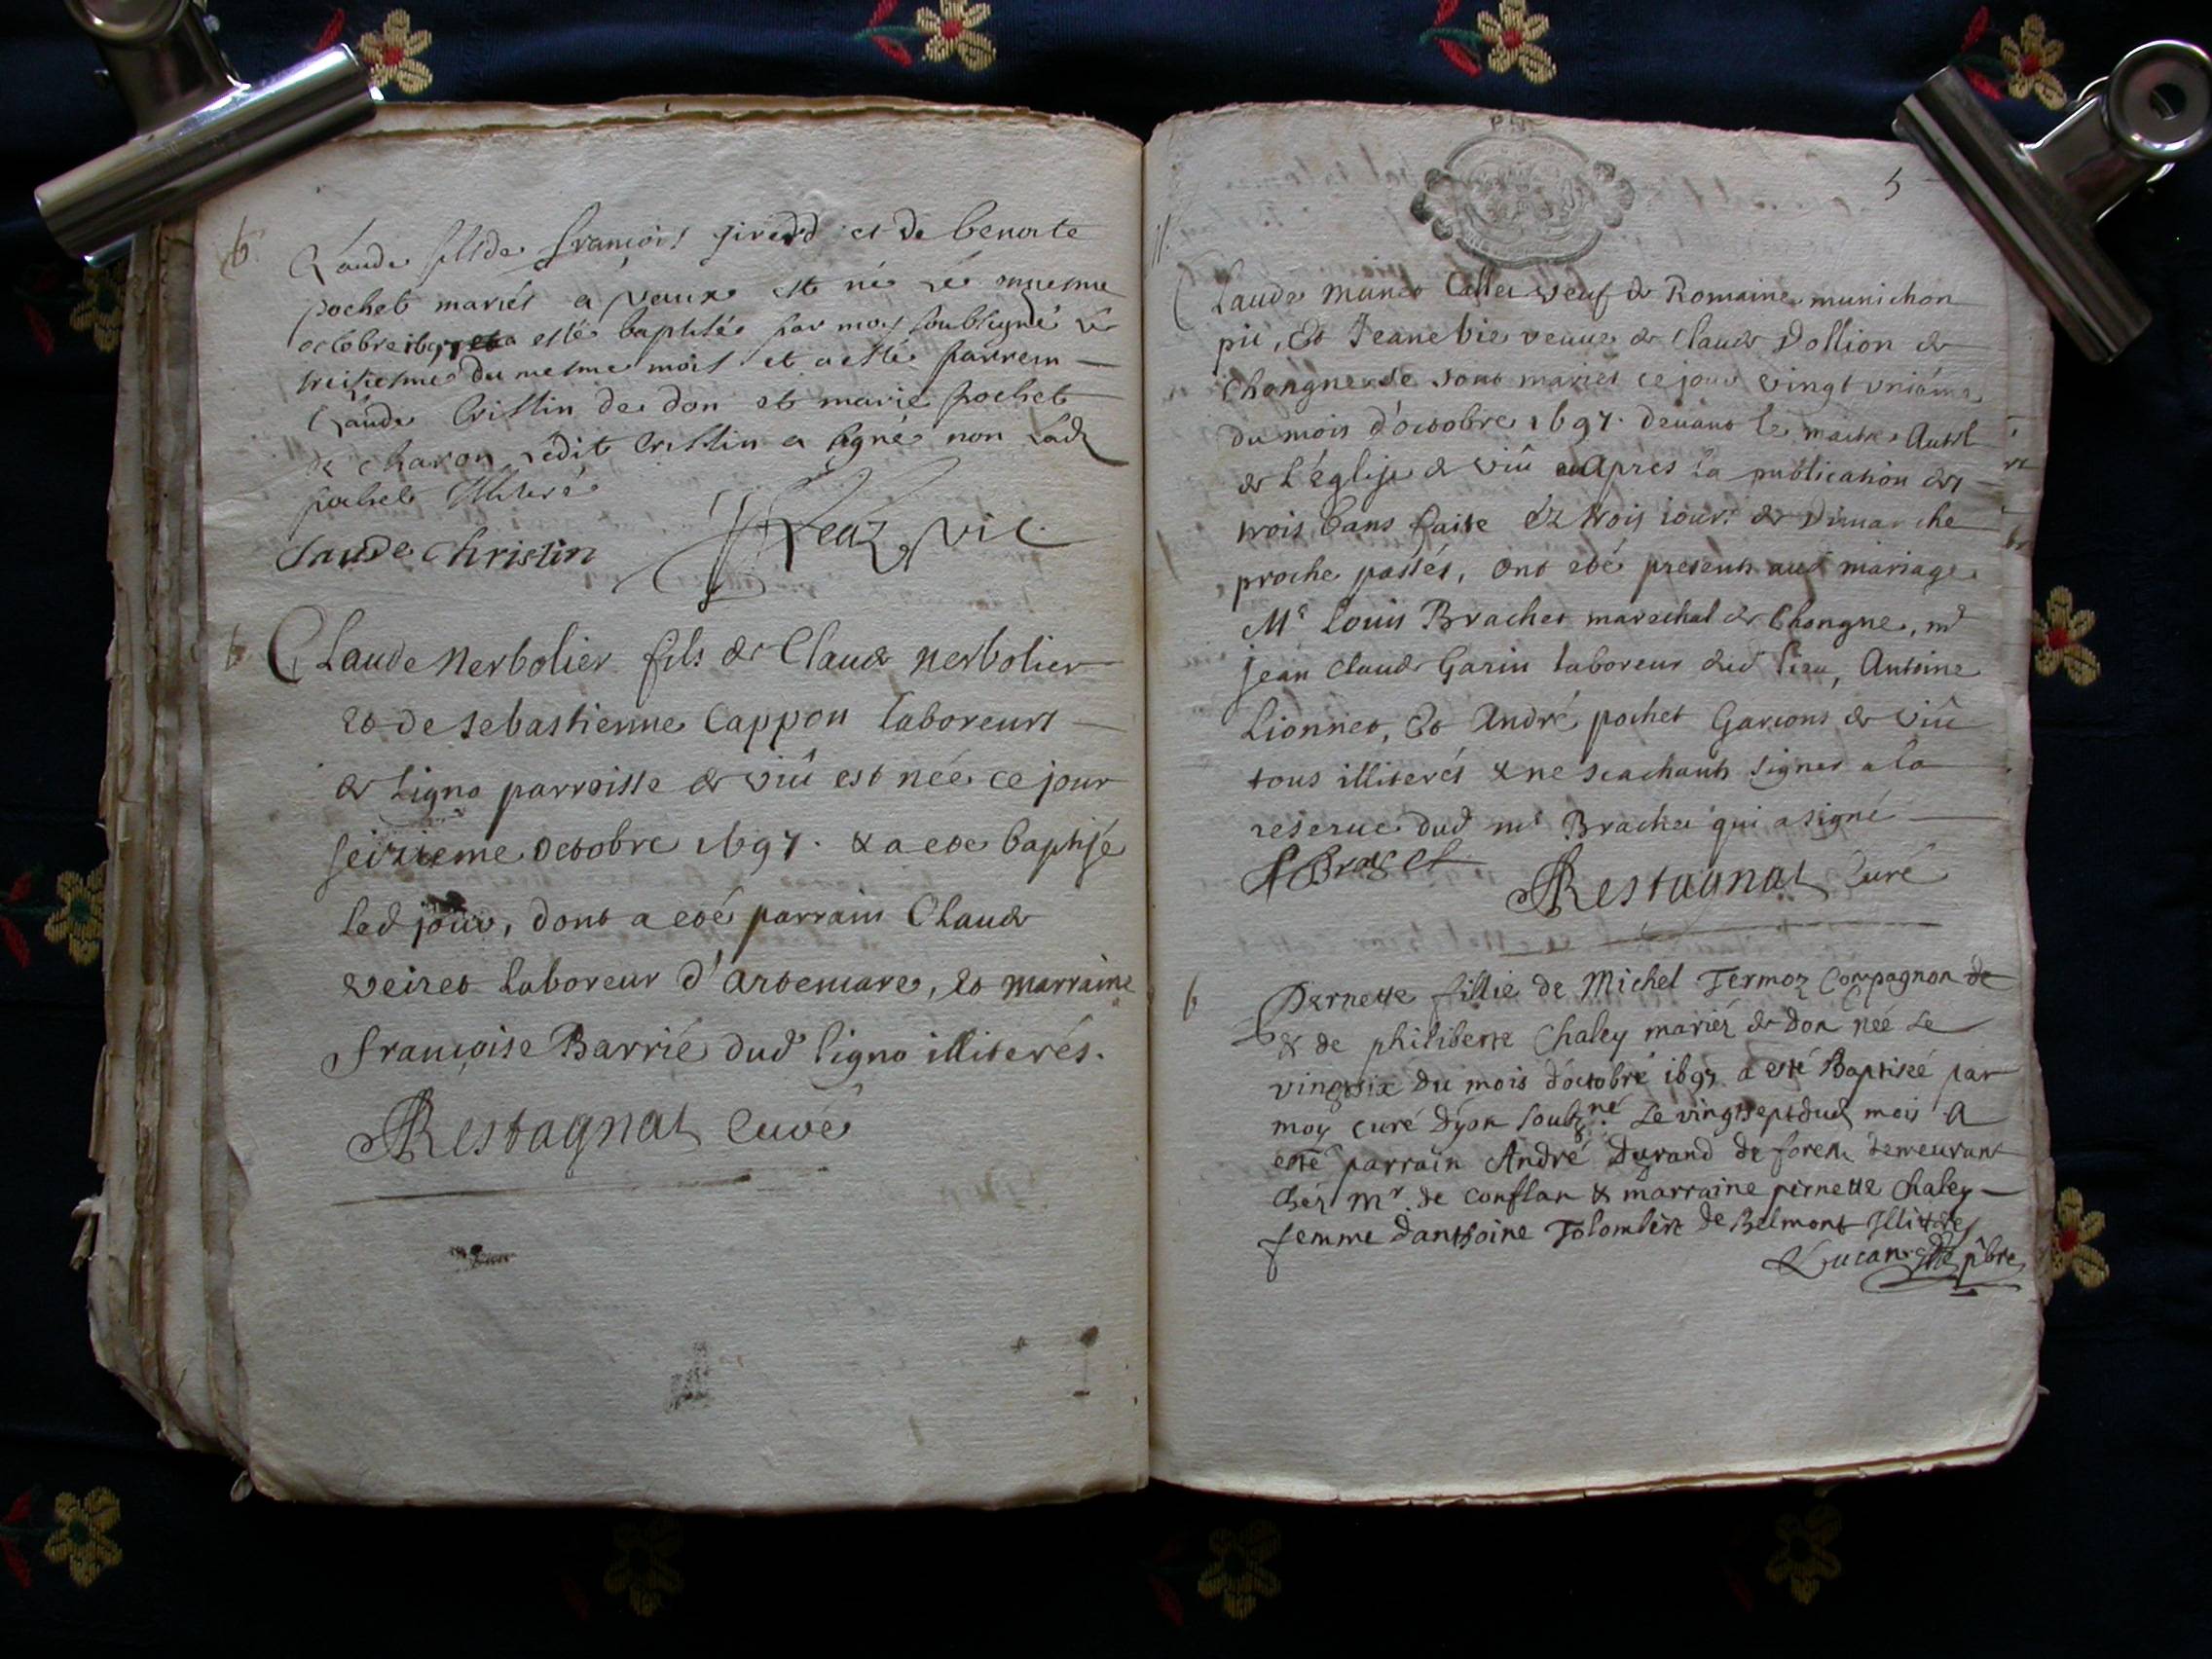 b.
Claude fils de françois girerd et de benoite
pochet mariés a vaux est né le onzieme
octobre 1697 et a esté baptisée par moy soubsigné le
treiziesme du mesme mois et a esté parrein
Claude Cristin de don et marie pochet
de charon ledit Cristin a signé non lad
pochet illiteré
Claude Christin vic
b
Claude Nerbolier fils de Claude Nerbolier
et de sebastienne Cappon laboreurs
de Ligno parroisse de viû est née ce jour
seizieme octobre 1697. & a eté baptisé
led jour, dont a eté parrain Claude
veiret laboreur d'artemare, et marraine
françoise Barrié dud ligno illiterés.
Restagnat curé
5
Claude Munet veuf de Romaine munichon
pié, et Jeane bie veuve de Claude Dollion de
Chongne se sont mariés ce jour vingt uniéme
du mois d'octobre 1697. devant le maitre Autel
de l'église de viû apres la publication des
trois bans faite éz trois jours de Dimanche
proche passés, ont eté presents aud mariage
Mr Louis Brachet marechal de Chongne, md
jean claude Garin laboreur dud lieu, Antoine
Lionnet, et André pochet Garçons de viû
tous illiterés & ne scachants signer a la
reserve dud mr Brachet qui a signé
Brachet
Restagnat Curé
b
Pernette fillie de Michel Termoz Compagnon de
& de philiberte Chaley mariéz de don née le
vingtsix du mois d'octobre 1697 a esté Baptisée par
moy curé dyon soubzné. le vingtsept dud mois A
esté parrain André Durand de forens demeurant
chéz Mr. de Conflan & marraine pernette Chaley
femme danthoine Tolombert de Belmont Illiterés
pbre